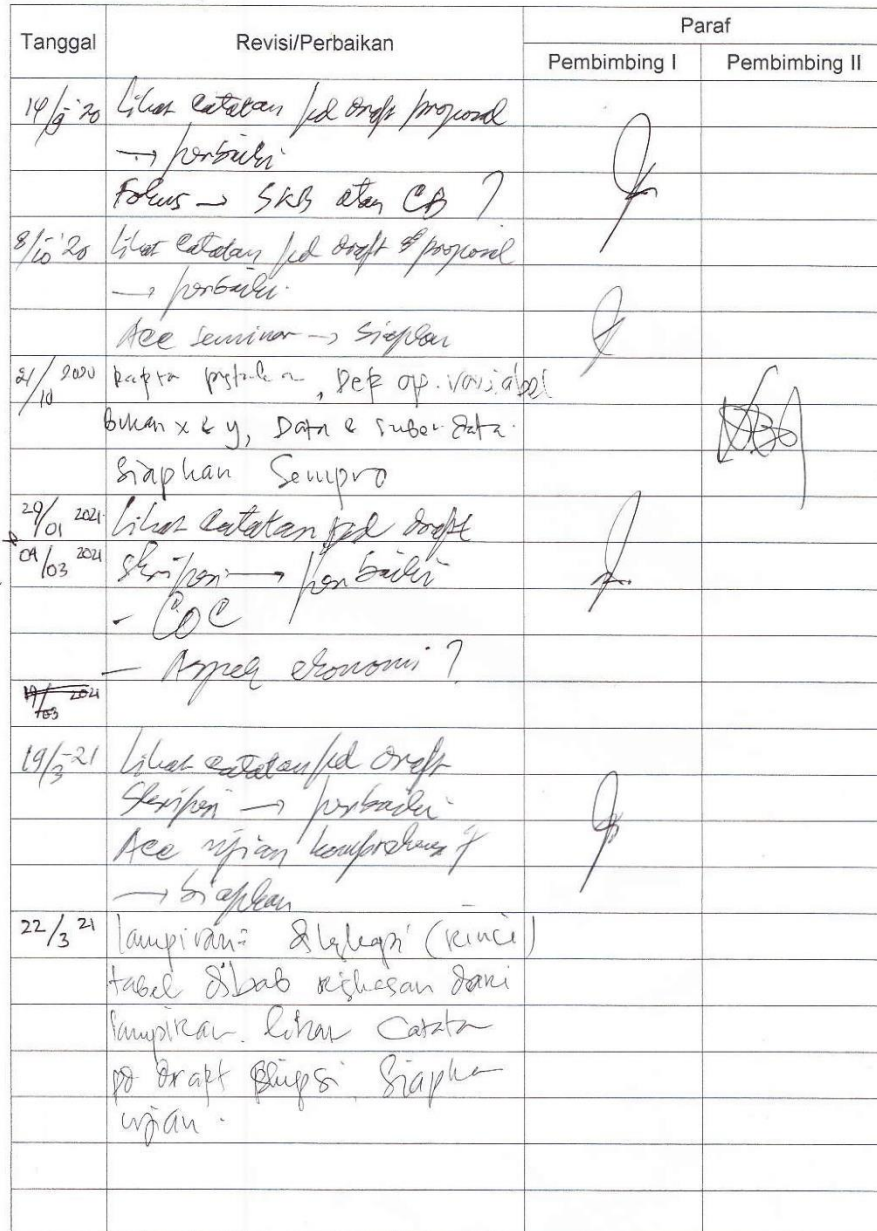 Tanggal
Revisi/Perbaikan
Paraf
Pembimbing I
Pembimbing II
14/9-'20 Lihat catatan pd draft proposal
→ perbaiki
Fokus → SKB atau CB ?
8/10-'20 Lihat catatan pd draft proposal
→ perbaiki.
Acc seminar → Siapkan
21/10 2020 pustaka, Def op. variabel
bukan x & y, Data & sumber data.
Siapkan Sempro
29/01 2021 Lihat catatan pd draft
09/03 2021 Skripsi → perbaiki
- COC
- Aspek ekonomi ?
19/03 2021
19/3-21 Lihat catatan pd draft
Skripsi → perbaiki
Acc ujian komprehensif
→ Siapkan
22/3 21 lampiran: dilengkapi (rinci)
tabel dibab ringkasan dari
lampiran. lihat Catata
pd draft Skripsi. Siapka
ujian.